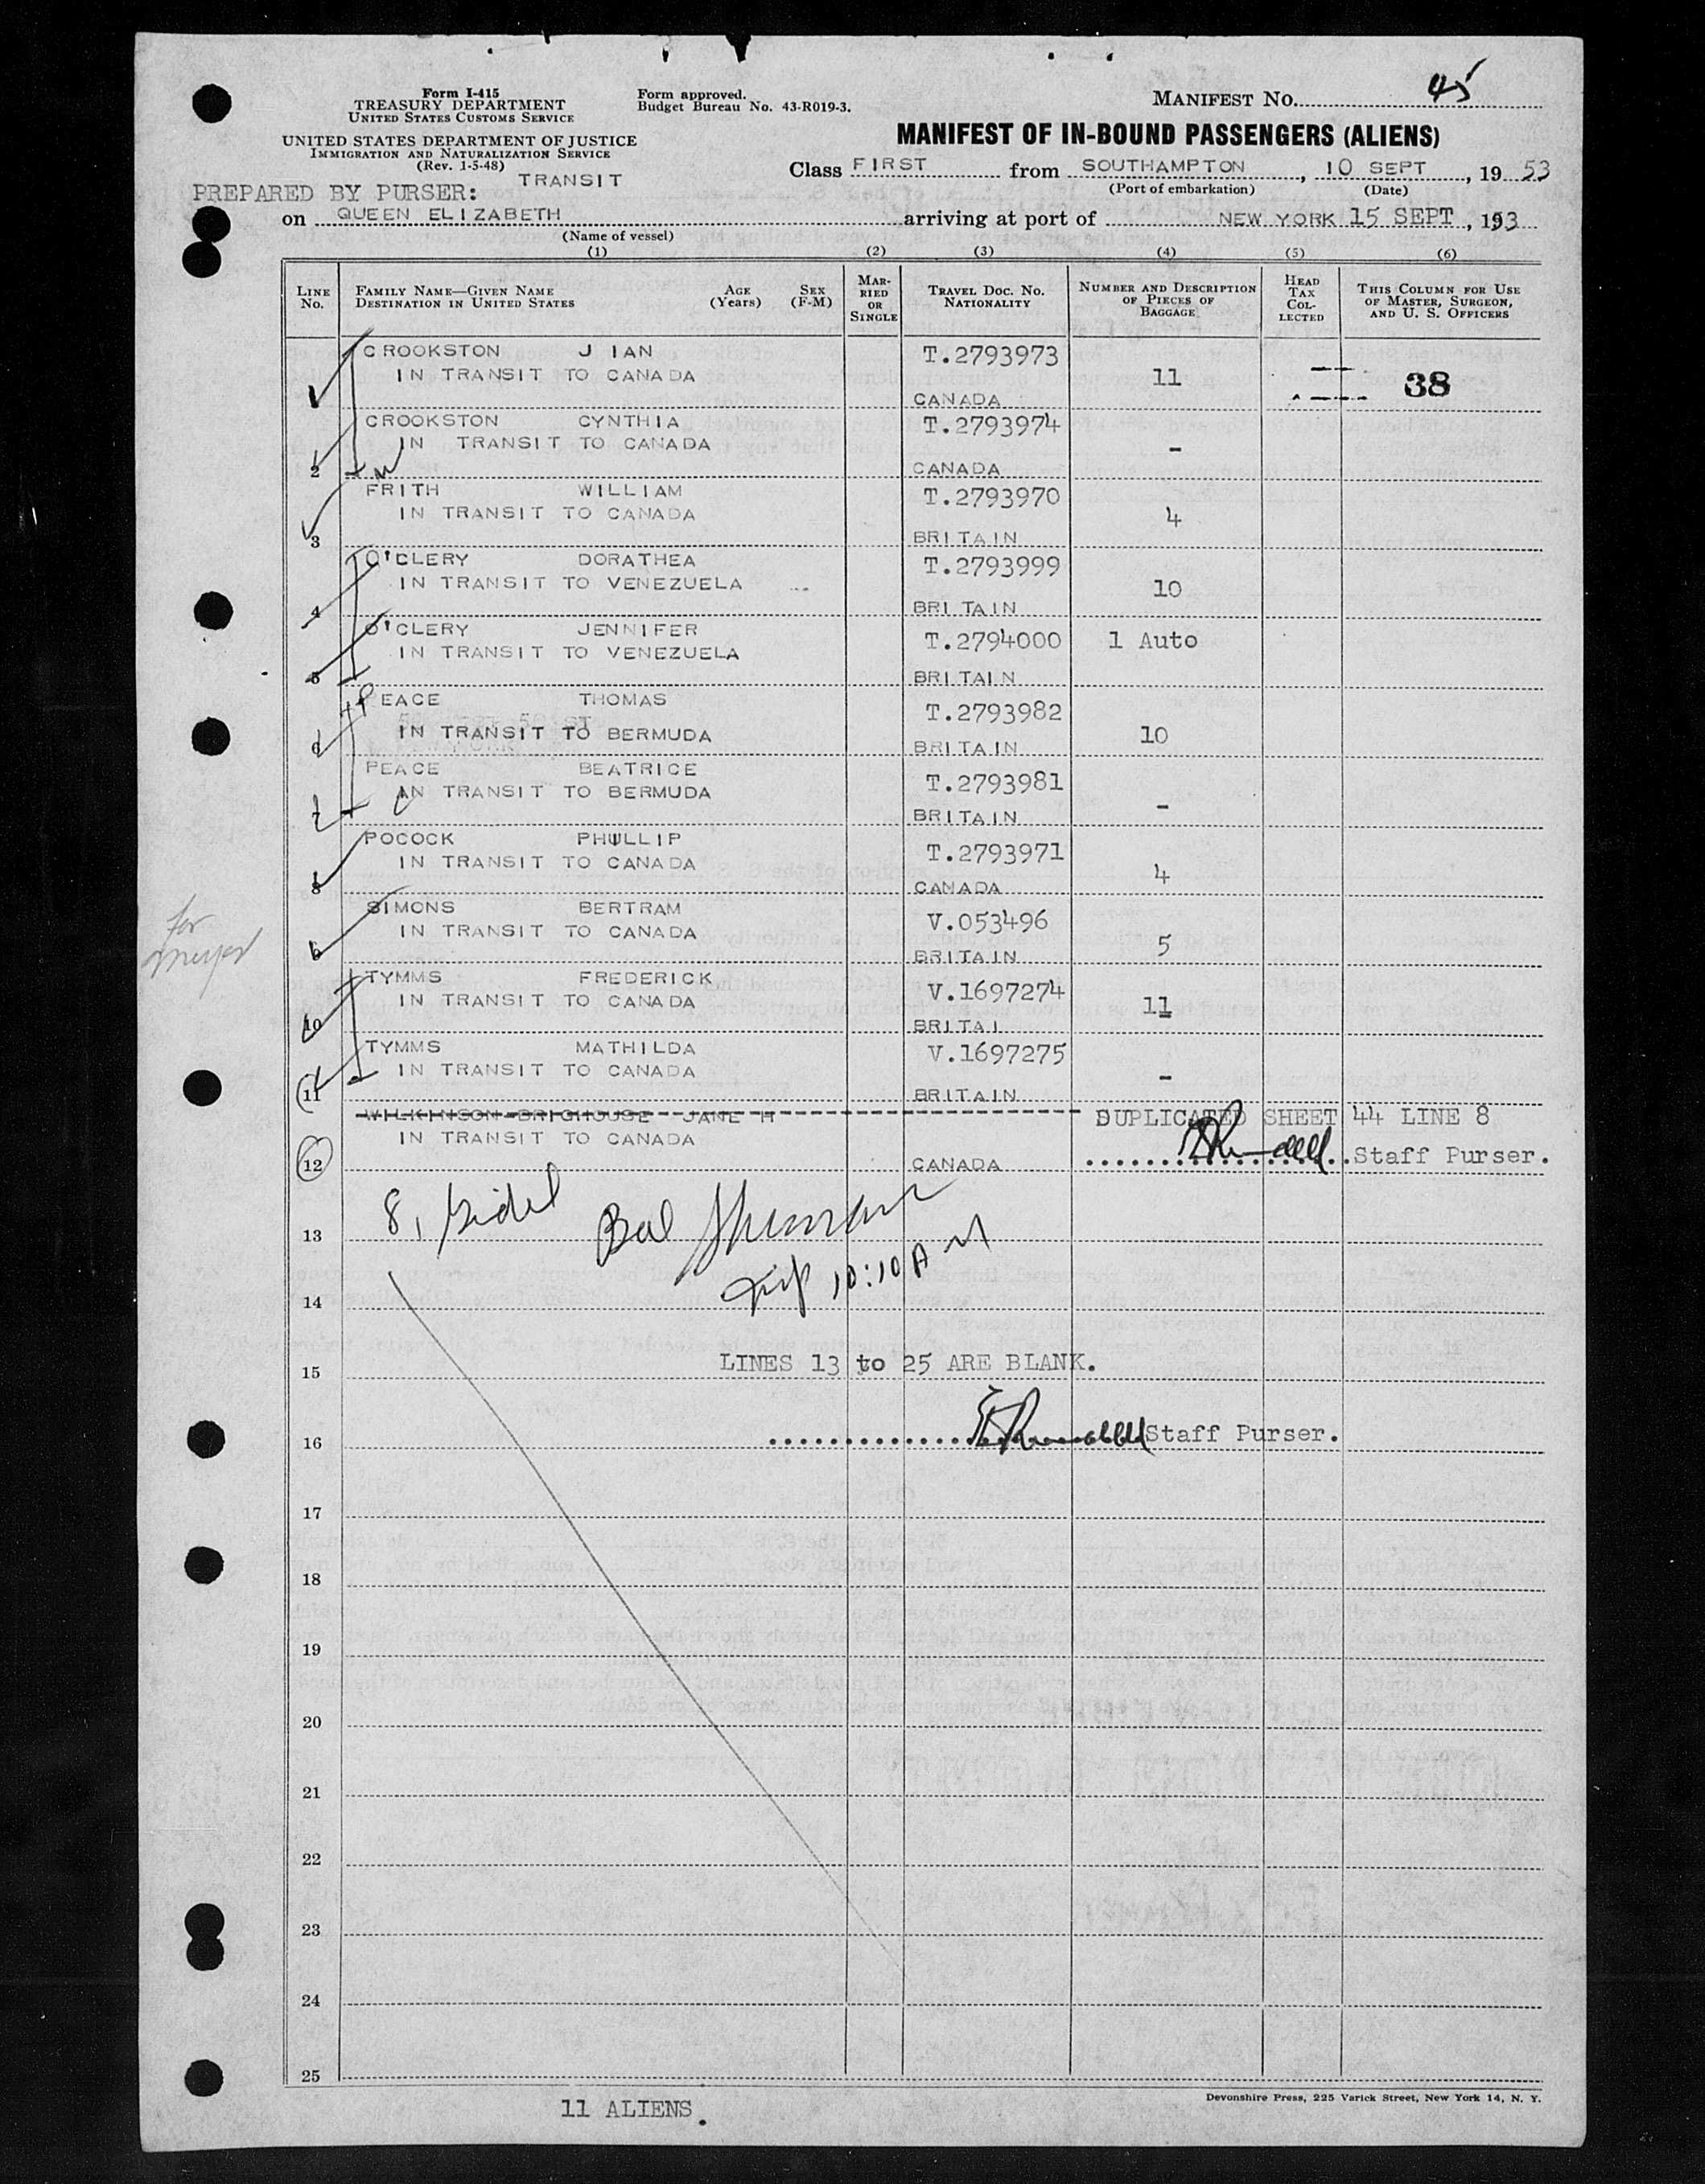 Form I-415
TREASURY DEPARTMENT
UNITED STATES CUSTOMS SERVICE
UNITED STATES DEPARTMENT OF JUSTICE
IMMIGRATION AND NATURALIZATION SERVICE
(Rev. 1-5-48)
Form approved.
Budget Bureau No. 43-R019-3.
MANIFEST NO. 45
MANIFEST OF IN-BOUND PASSENGERS (ALIENS)
TRANSIT
Class FIRST from SOUTHAMPTON, 10 SEPT, 1953
(Port of embarkation) (Date)
PREPARED BY PURSER:
on QUEEN ELIZABETH arriving at port of NEW YORK 15 SEPT, 193
(Name of vessel)
(1) (2) (3) (4) (5) (6)
LINE NO. FAMILY NAME—GIVEN NAME DESTINATION IN UNITED STATES AGE (Years) SEX (F-M) MARRIED OR SINGLE TRAVEL DOC. NO. NATIONALITY NUMBER AND DESCRIPTION OF PIECES OF BAGGAGE HEAD TAX COLLECTED THIS COLUMN FOR USE OF MASTER, SURGEON, AND U. S. OFFICERS
CROOKSTON J IAN T.2793973
IN TRANSIT TO CANADA 11 38
CANADA
CROOKSTON CYNTHIA T.2793974
IN TRANSIT TO CANADA -
2 CANADA
FRITH WILLIAM T.2793970
IN TRANSIT TO CANADA 4
3 BRITAIN
O'CLERY DORATHEA T.2793999
IN TRANSIT TO VENEZUELA 10
4 BRITAIN
O'CLERY JENNIFER T.2794000 1 Auto
IN TRANSIT TO VENEZUELA
5 BRITAIN
PEACE THOMAS T.2793982
IN TRANSIT TO BERMUDA 10
6 BRITAIN
PEACE BEATRICE T.2793981
IN TRANSIT TO BERMUDA -
7 BRITAIN
POCOCK PHILLIP T.2793971
IN TRANSIT TO CANADA 4
8 CANADA
SIMONS BERTRAM V.053496
IN TRANSIT TO CANADA 5
9 BRITAIN
TYMMS FREDERICK V.1697274
IN TRANSIT TO CANADA 11
10 BRITAI
TYMMS MATHILDA V.1697275
IN TRANSIT TO CANADA -
11 BRITAIN
WILKINSON-BRIGHOUSE JANE H DUPLICATED SHEET 44 LINE 8
IN TRANSIT TO CANADA
12 CANADA Staff Purser.
for
13
10:10 AM
14
LINES 13 to 25 ARE BLANK.
15
16 Staff Purser.
17
18
19
20
21
22
23
24
25
Devonshire Press, 225 Varick Street, New York 14, N. Y.
11 ALIENS.